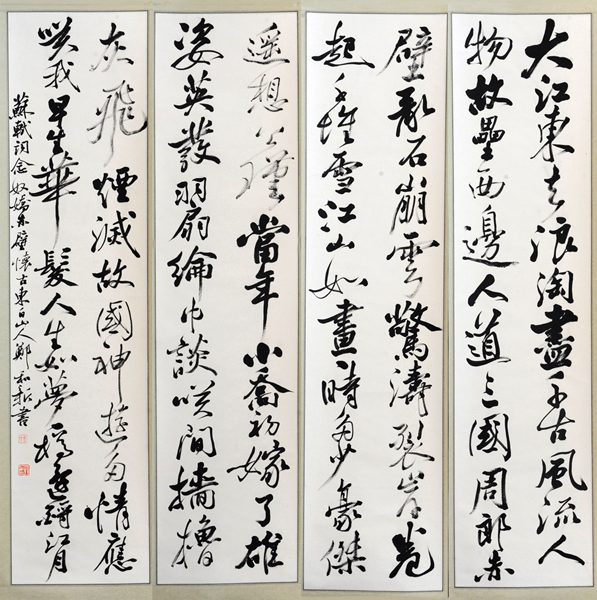 大江東去浪淘盡千古風流人
物故壘西邊人道三國周郎赤
壁亂石崩雲驚濤裂岸卷
起千堆雪江山如畫一時多少豪傑
遥想公瑾當年小喬初嫁了雄
姿英發羽扇綸巾談笑間檣櫓
灰飛煙滅故國神遊多情應
笑我早生華髮人生如夢一樽還酹江月
蘇軾詞念奴嬌赤壁懷古東白山人鄭和新書